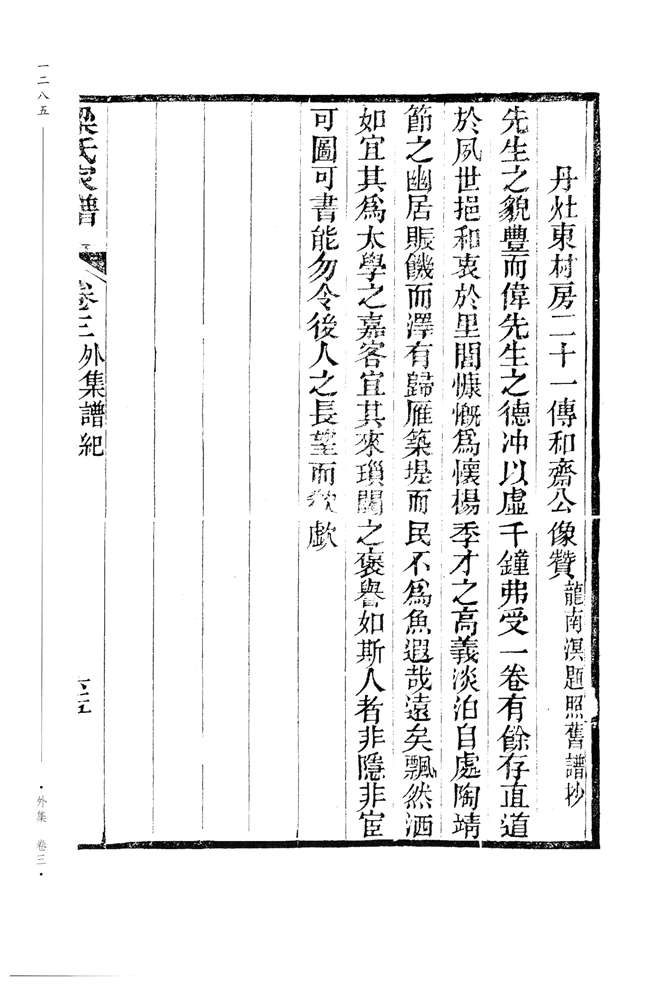 丹灶東村房二十一傳和齋公像贊龍南溟題照舊譜抄
先生之貌豐而偉先生之德冲以虛千鐘弗受一卷有餘存直道
於夙世挹和衷於里閭慷慨爲懷楊季才之高義淡泊自處陶靖
節之幽居賑饑而澤有歸雁築堤而民不爲魚遐哉遠矣飄然洒
如宜其爲太學之嘉客宜其來瑣闥之褒譽如斯人者非隱非宦
可圖可書能勿令後人之長望而欷歔
梁氏家譜
卷三外集譜紀
一二八五
外集 卷三